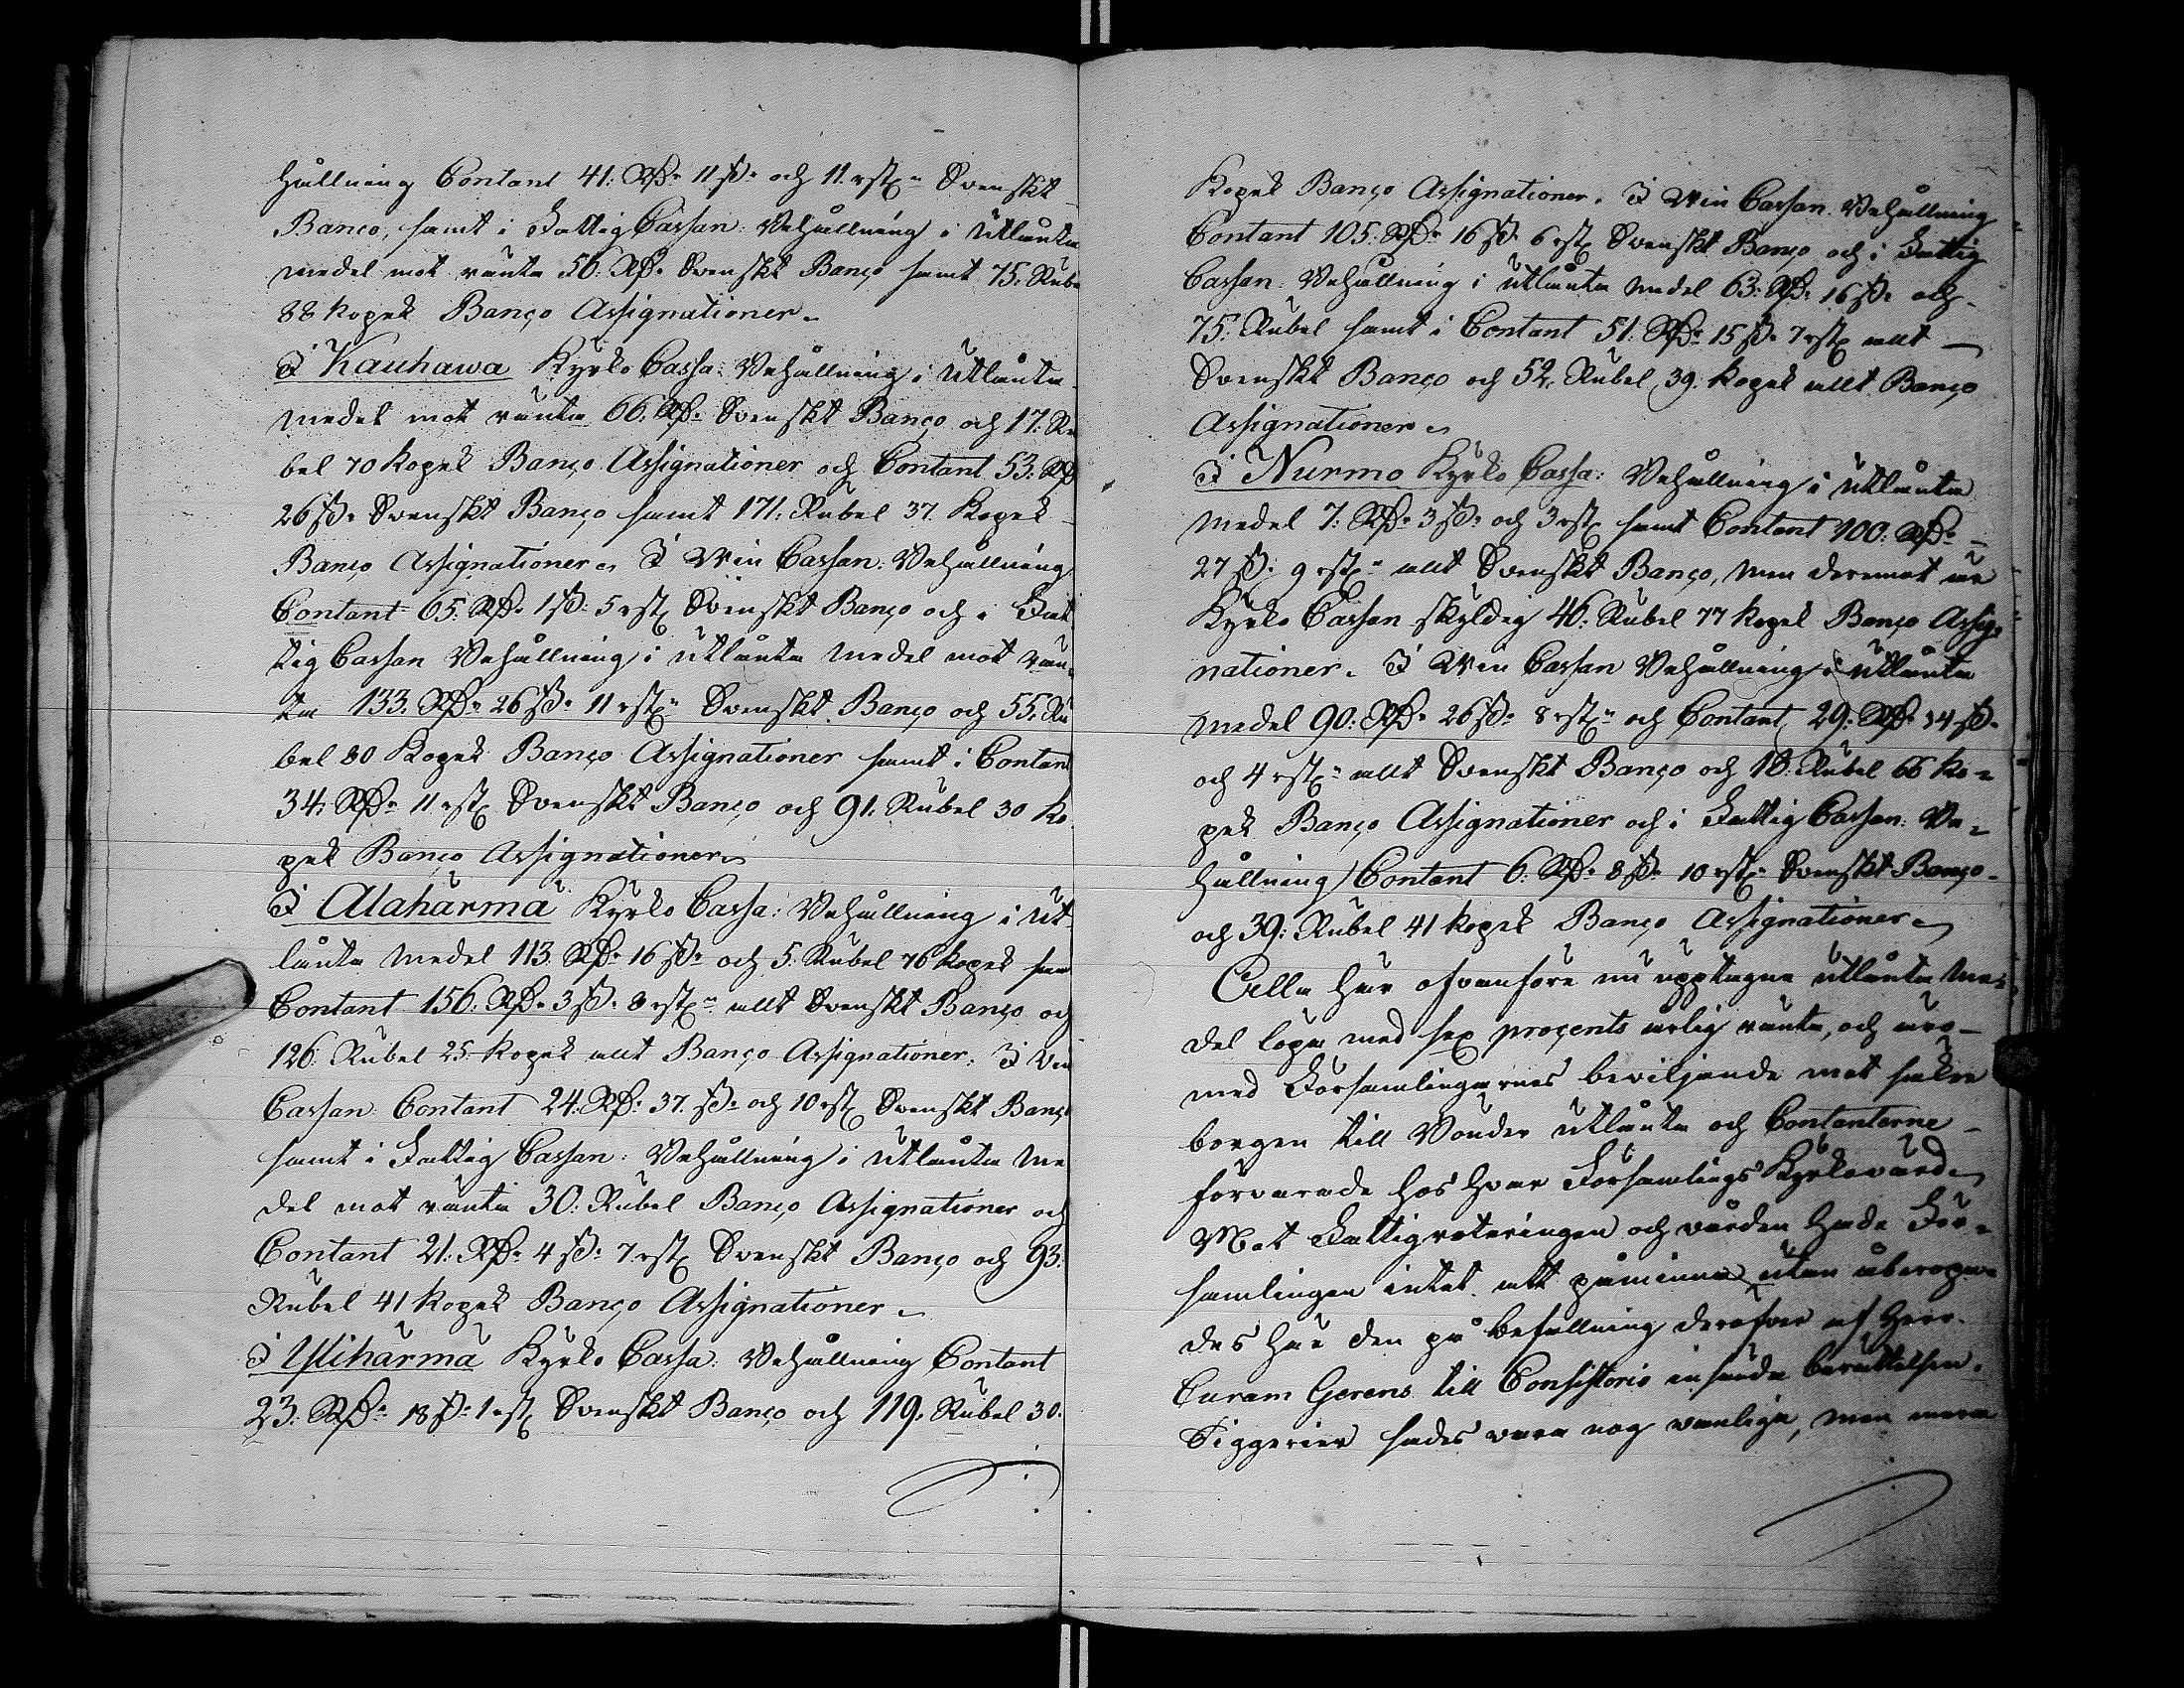 hållning Contant 41: RD: 11 sk: och 11. rst: Svenskt
Banco, samt i Fattig Cassan: Behållning i Utlånta
medel mot ränta 56: RD: Svenskt Banco samt 75: Rube
88 kopek Banco Assignationer.
I Kauhawa Kyrko Cassa: Behållning i Utlånta
medel mot ränta 66: RD: Svenskt Banco och 17: Ru
bel 70 kopek Banco Assignationer och Contant 53: RD
26 sk: Svenskt Banco samt 171: Rubel 37. Kopek
Banco Assignationer. I Win Cassan: Behållning
Contant 65: RD: 1 sk: 5 rst: Svenskt Banco och i Fat
tig Cassan Behållning i utlånta medel mot rän-
ta 133: RD: 26 sk: 11 rst: Svenskt Banco och 55: Ru
bel 80 Kopek Banco Assignationer samt i Contant
34: RD: 11 rst: Svenskt Banco och 91: Rubel 30 Ko
pek Banco Assignationer.
I Alahärmä Kyrko Cassa: Behållning i Ut-
lånta medel 113: RD: 16 sk: och 5: Rubel 76 kopek sam
Contant 156: RD: 3 sk: 8 rst: allt Svenskt Banco och
126: Rubel 25 kopek allt Banco Assignationer: I Vin
Cassan: Contant 24: RD: 37. sk: och 10 rst: Svenskt Banco
samt i Fattig Cassan: Behållning i Utlånta me
del mot ränta 30: Rubel Banco Assignationer och
Contant 21: RD: 4 sk: 7 rst: Svenskt Banco och 93:
Rubel 41 kopek Banco Assignationer.
I Ylihärmä Kyrko Cassa: Behållning Contant
23: RD: 18 sk: 1 rst: Svenskt Banco och 119: Rubel 30:
Kopek Banco Assignationer. I Win Cassan: Behållning
Contant 105: RD: 16 sk: 6 rst: Svenskt Banco och i Fattig
Cassan: Behållning i utlånta medel 63: RD: 16 sk: och
75: Rubel samt i Contant 51: RD: 15 sk: 7 rst: allt
Svenskt Banco och 52: Rubel 39: kopek allt Banco
Assignationer.
I Nurmo Kyrko Cassa: Behållning i utlånta
medel 7: RD: 3 sk: och 3 rst: samt Contant 100: RD:
27 sk: 9 rst: allt Svenskt Banco, men deremot är
Kyrko Cassan skyldig 46: Rubel 77 kopek Banco Assig-
nationer. I Win Cassan Behållning i utlånta
medel 90: RD: 26 sk: 8 rst: och Contant 29: RD: 34 sk:
och 4 rst: allt Svenskt Banco och 18: Rubel 66 ko-
pek Banco Assignationer och i Fattig Cassan: Be-
hållning Contant 6: RD: 8 sk: 10 rst: Svenskt Banco
och 39: Rubel 41 kopek Banco Assignationer.
Alla här ofvanföre nu upptagna utlånta me-
del löpa med sex procents årlig ränta, och äro
med Församlingarnes beviljande mot säker
borgen till Bönder utlånta och Contanterne
förvarade hos hvar Församlings Kyrkovärd.
Mot Fattigroteringen och vården hade För-
samlingen intet att påminna utan åberopa-
des här den på befallning deröfver af Herr
Curam Gerens till Consistorio insända berättelsen.
Tiggerier sades vara nog vanliga, men mera